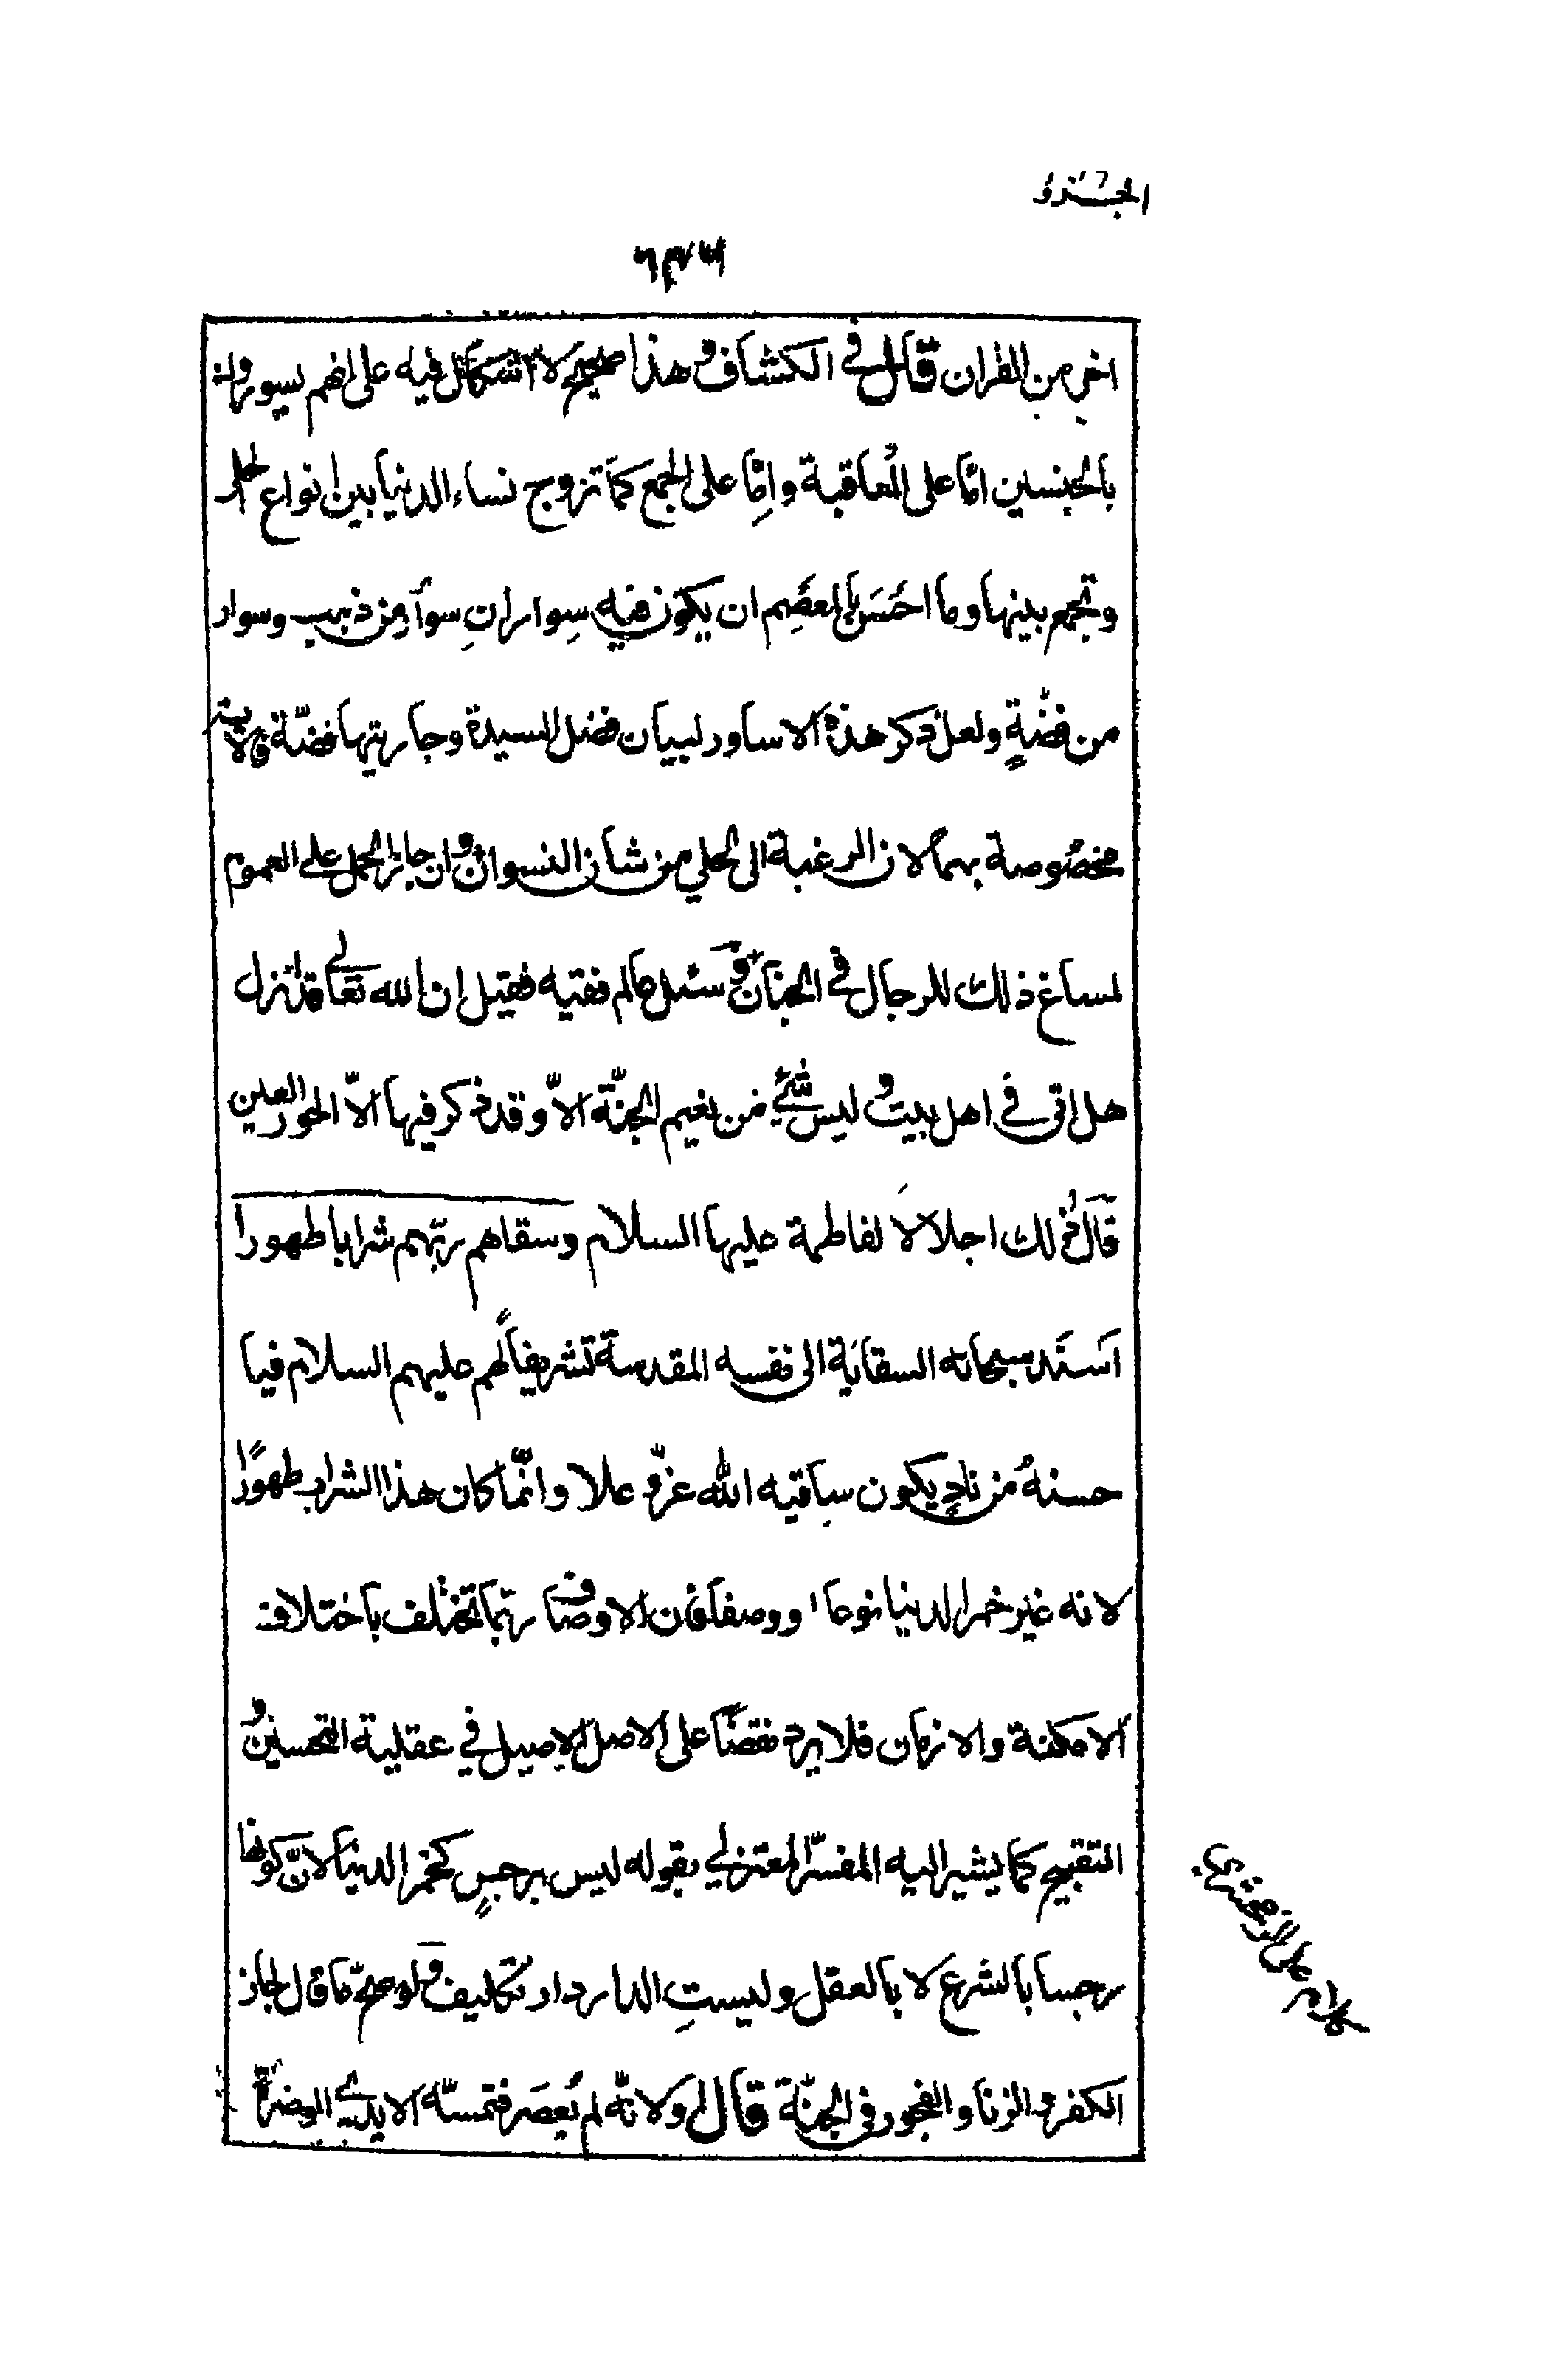 اخر من القران قال في الكشاف وهذا صحيح لا اشكال فيه على انهم يسورون
بالجنسين امّا على المعاقبة وامّا على الجمع كما تزوج نساء الدنيا بين انواع الحلي
وتجمع بينها وما احسَن بالمعصَم ان يكون فيه سِوارانِ سوار من ذهب وسوار
من فضّةٍ ولعل ذكر هذه الاساور لبيان فضل السيدة وجاريتها فضّة فالاية
مخصُوصة بهما لان الرغبة الى الحلي من شان النسوان وان جاز الحمل على العموم
لمساغ ذلك للرجال في الجنان وسئل عالم فقيه فقيل ان الله تعالى قد انزل
هل اتى في اهل بيت وليس شئ من نعيم الجنّة الاّ وقد ذكر فيها الاّ الحور العين
قال ذلك اجلالا لفاطمة عليها السلام وسقاهم ربّهم شرابا طهورا
اسند سبحانه السقاية الى نفسه المقدسة تشريفاً لهم عليهم السلام فيا
حسنهُ من نادٍ يكون ساقيه الله عزّ وعلا وانّما كان هذا الشراب طهورًا
لانه غير خمر الدنيا نوعا او وصفا فان الاوصاف ربّما تختلف باختلاف
الامكنة والازمان فلا يرد نقضًا على الاصل الاصيل في عقلية التحسين و
التقبيح كما يشير اليه المفسّر المعتزلي بقوله ليس برجسٍ كخمر الدنيا لانّ كونها
رجسا بالشرع لا بالعقل وليستِ الدار دار تكليف ولو صحّ ما قال لجاز
الكفر والزنا والفجور في الجنّة قال اولانّه لم يُعصَر فتمسّه الايدي الوضرة
كلام على الزمخشري